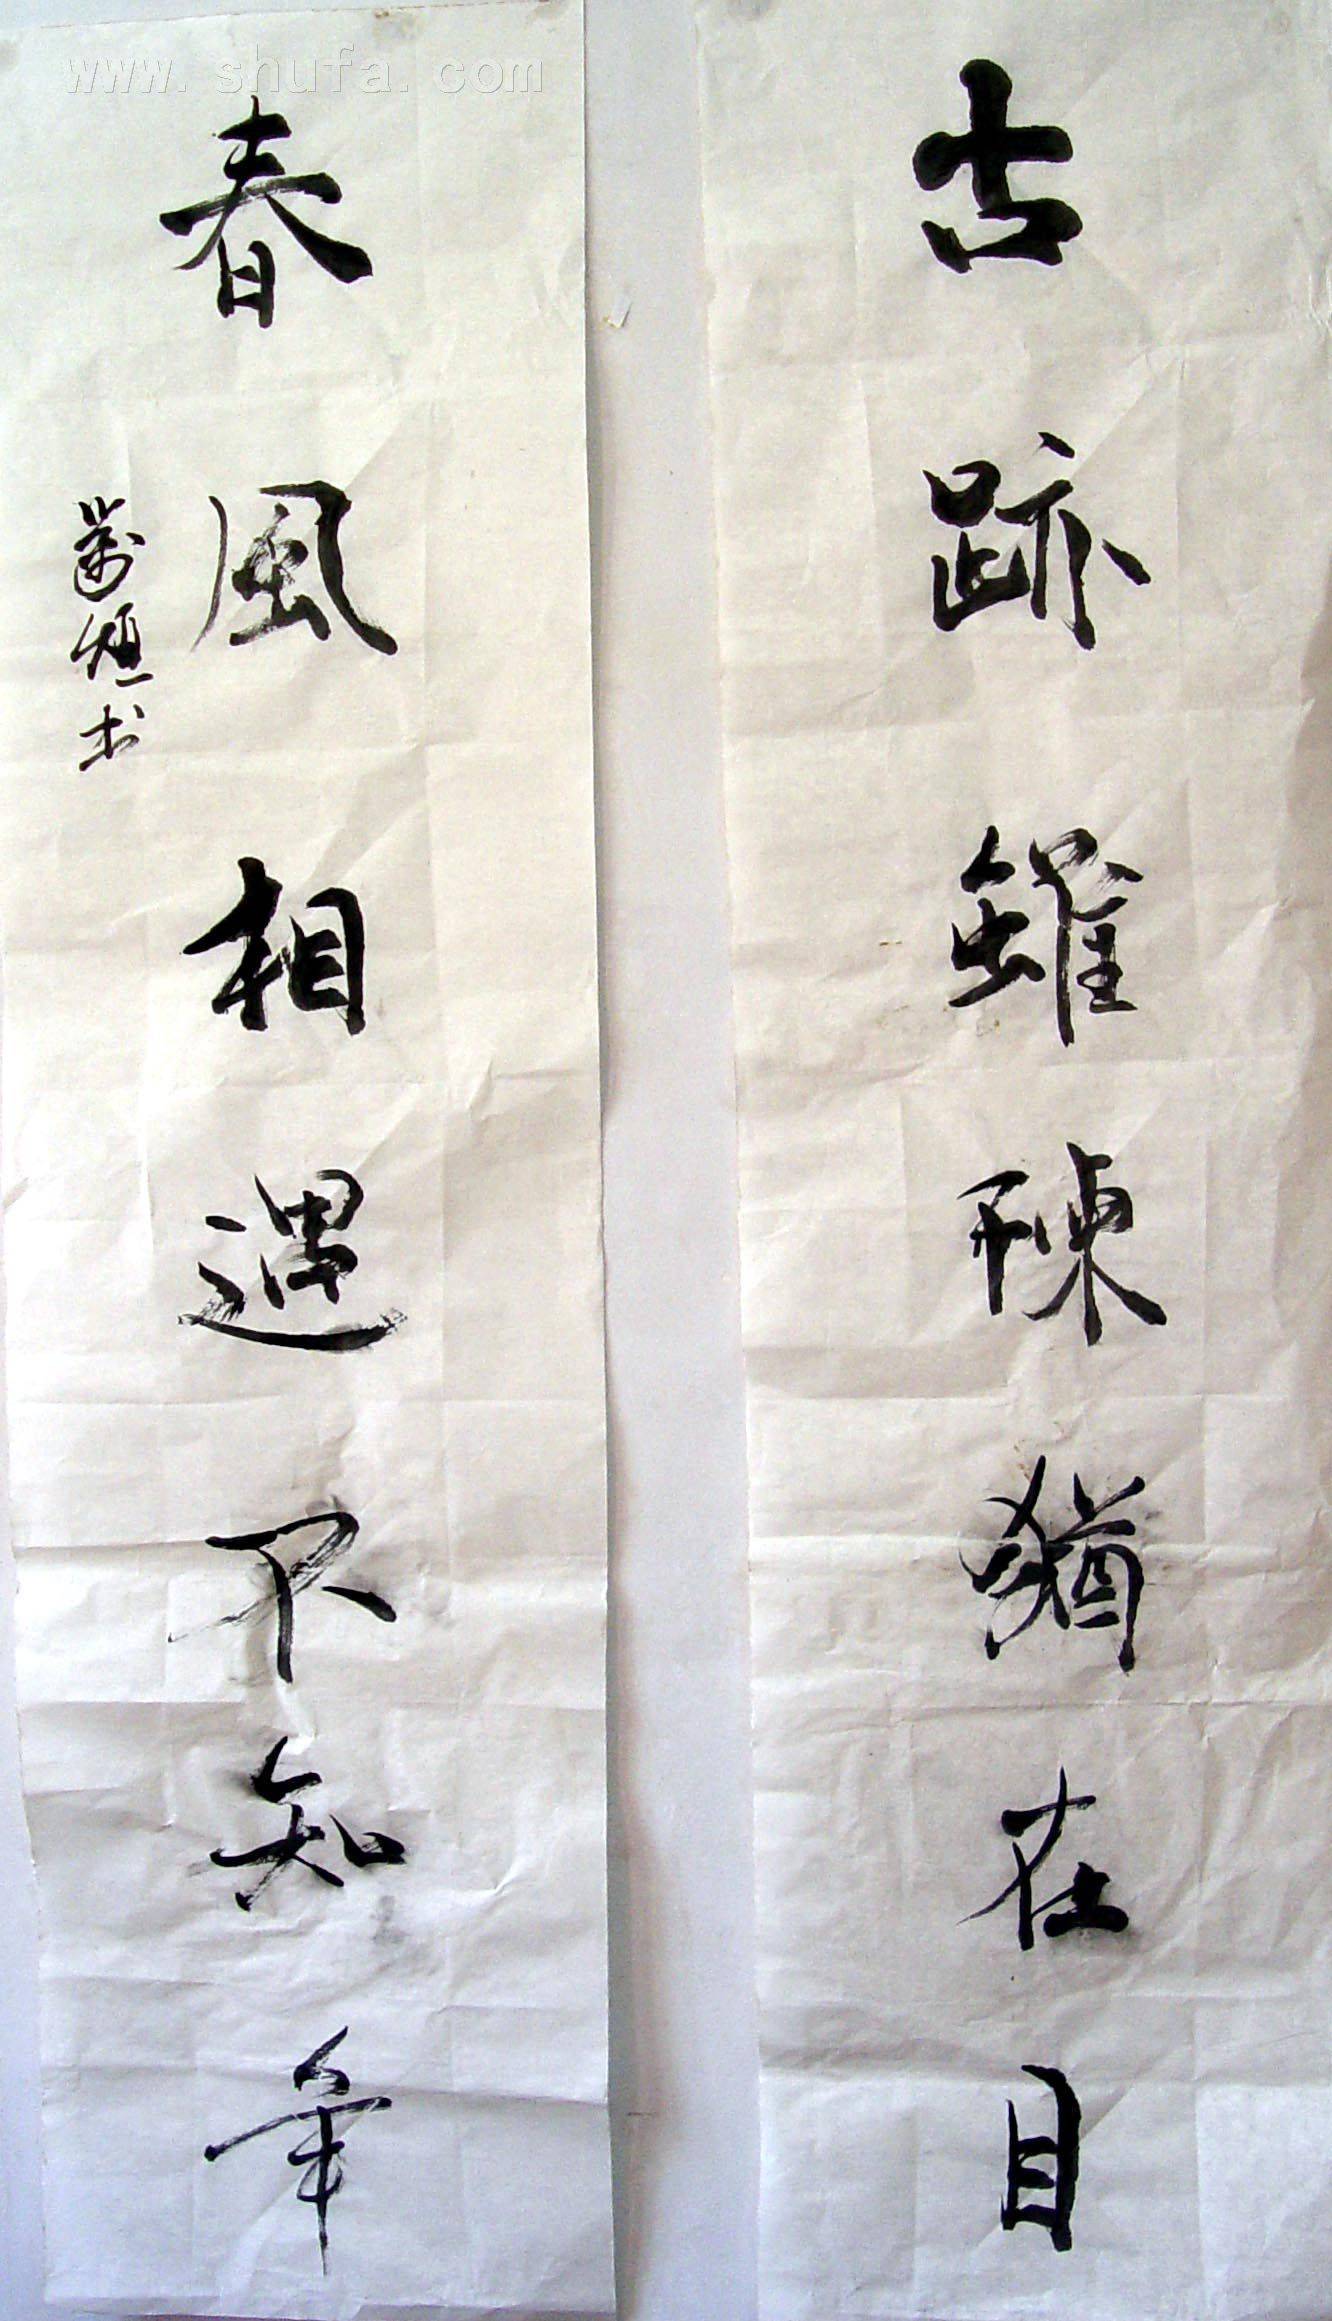 古跡雖陳猶在目
春風相遇不知年
www.shufa.com